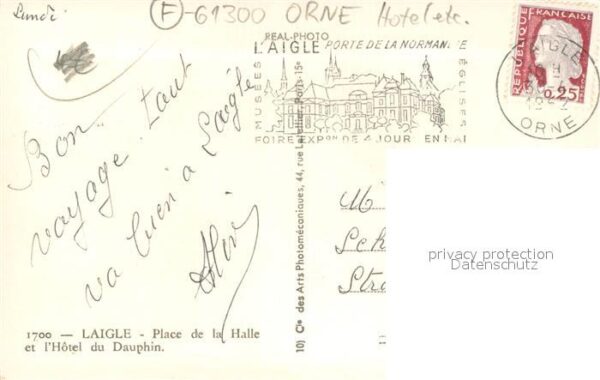 Lundi
(F)-61300 ORNE Hotel etc.
REAL-PHOTO
L'AIGLE PORTE DE LA NORMANDIE
MUSEES
EGLISES
FOIRE EXPON DE 4 JOUR EN MAI
REPUBLIQUE
FRANCAISE
0,25
LAIGLE
ORNE
Bon
voyage. Tout
va bien à Laigle
1700 — LAIGLE - Place de la Halle
et l'Hôtel du Dauphin.
10) Cie des Arts Photomécaniques, 44, rue Letellier, Paris-15e
M
Sch
Stra
privacy protection
Datenschutz